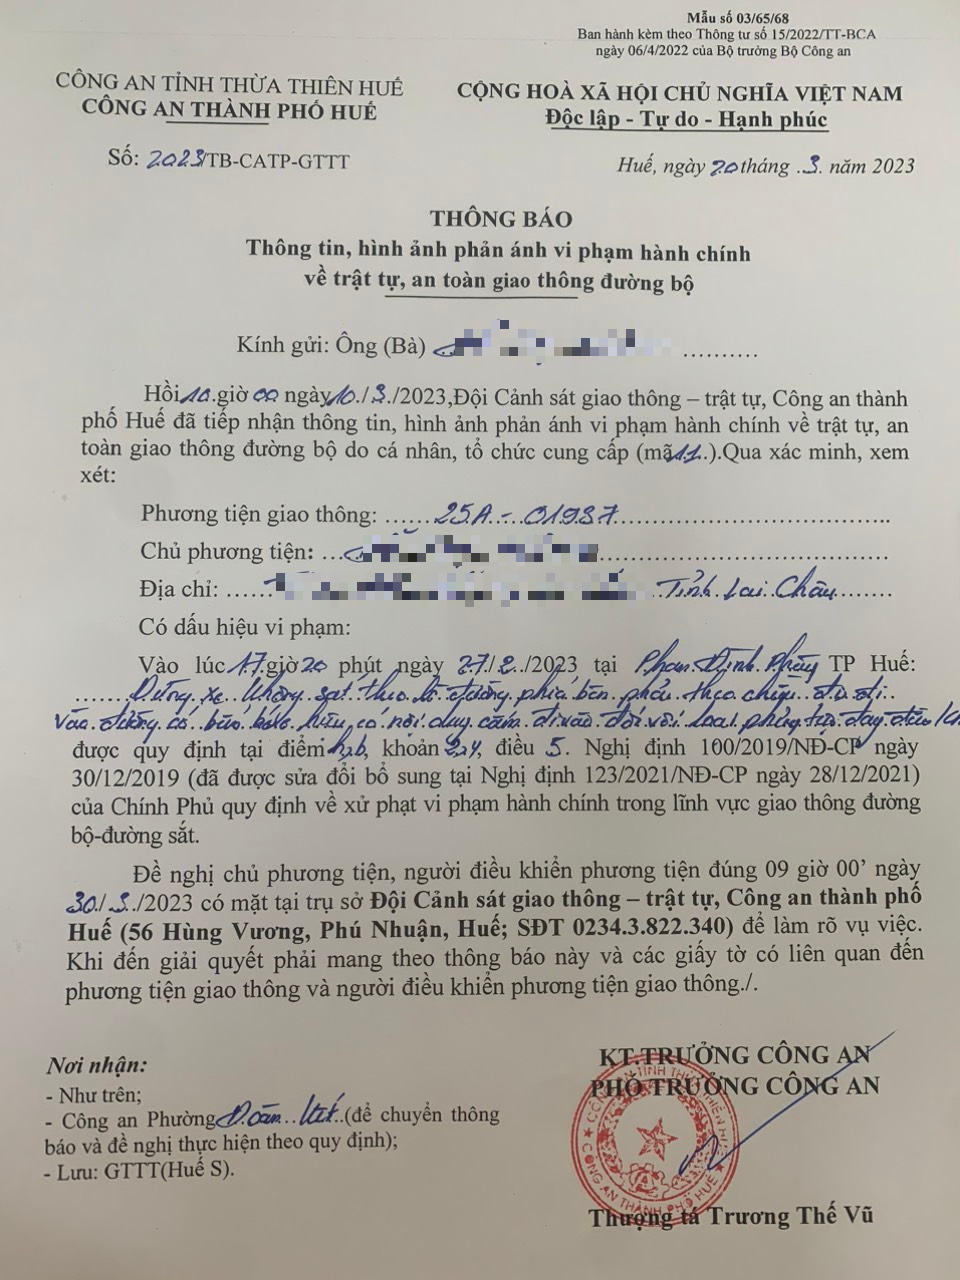 Mẫu số 03/65/68
Ban hành kèm theo Thông tư số 15/2022/TT-BCA
ngày 06/4/2022 của Bộ trưởng Bộ Công an
CÔNG AN TỈNH THỪA THIÊN HUẾ
CÔNG AN THÀNH PHỐ HUẾ
CỘNG HOÀ XÃ HỘI CHỦ NGHĨA VIỆT NAM
Độc lập - Tự do - Hạnh phúc
Số: 2023/TB-CATP-GTTT
Huế, ngày 20 tháng .3. năm 2023
THÔNG BÁO
Thông tin, hình ảnh phản ánh vi phạm hành chính
về trật tự, an toàn giao thông đường bộ
Kính gửi: Ông (Bà) ..........
Hồi 10.giờ 00 ngày 10./.3./2023,Đội Cảnh sát giao thông – trật tự, Công an thành
phố Huế đã tiếp nhận thông tin, hình ảnh phản ánh vi phạm hành chính về trật tự, an
toàn giao thông đường bộ do cá nhân, tổ chức cung cấp (mã 11..).Qua xác minh, xem
xét:
Phương tiện giao thông: ......25A-01937..............................
Chủ phương tiện: ...
Địa chỉ: ...... Tỉnh Lai Châu........
Có dấu hiệu vi phạm:
Vào lúc 17.giờ 20 phút ngày 27./2../2023 tại Phan Đình Phùng TP Huế:
......Dừng xe không sát theo lề đường phía bên phải theo chiều đi, đi
vào đường có biển báo hiệu có nội dung cấm đi vào đối với loại phương tiện đang điều
được quy định tại điểm h,b, khoản 2,4, điều 5. Nghị định 100/2019/NĐ-CP ngày
30/12/2019 (đã được sửa đổi bổ sung tại Nghị định 123/2021/NĐ-CP ngày 28/12/2021)
của Chính Phủ quy định về xử phạt vi phạm hành chính trong lĩnh vực giao thông đường
bộ-đường sắt.
Đề nghị chủ phương tiện, người điều khiển phương tiện đúng 09 giờ 00’ ngày
30./.3./2023 có mặt tại trụ sở Đội Cảnh sát giao thông – trật tự, Công an thành phố
Huế (56 Hùng Vương, Phú Nhuận, Huế; SĐT 0234.3.822.340) để làm rõ vụ việc.
Khi đến giải quyết phải mang theo thông báo này và các giấy tờ có liên quan đến
phương tiện giao thông và người điều khiển phương tiện giao thông./.
Nơi nhận:
- Như trên;
- Công an Phường Đoàn Kết.(để chuyển thông
báo và đề nghị thực hiện theo quy định);
- Lưu: GTTT(Huế S).
KT.TRƯỞNG CÔNG AN
PHÓ TRƯỞNG CÔNG AN
CÔNG AN TỈNH THỪA THIÊN HUẾ
CÔNG AN THÀNH PHỐ HUẾ
Thượng tá Trương Thế Vũ